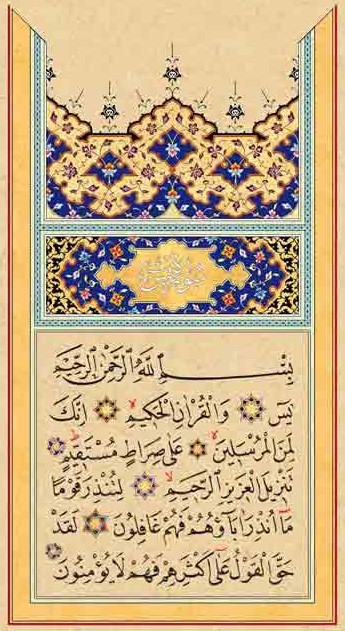 بِسْمِ اللّٰهِ الرَّحْمٰنِ الرَّحِيمِ
يٰسٓ وَالْقُرْاٰنِ الْحَكِيمِ اِنَّكَ
لَمِنَ الْمُرْسَلِينَ عَلٰى صِرَاطٍ مُسْتَقِيمٍ
تَنْزِيلَ الْعَزِيزِ الرَّحِيمِ لِتُنْذِرَ قَوْمًا
مَٓا اُنْذِرَ اٰبَٓاؤُهُمْ فَهُمْ غَافِلُونَ لَقَدْ
حَقَّ الْقَوْلُ عَلٰٓى اَكْثَرِهِمْ فَهُمْ لَا يُؤْمِنُونَ